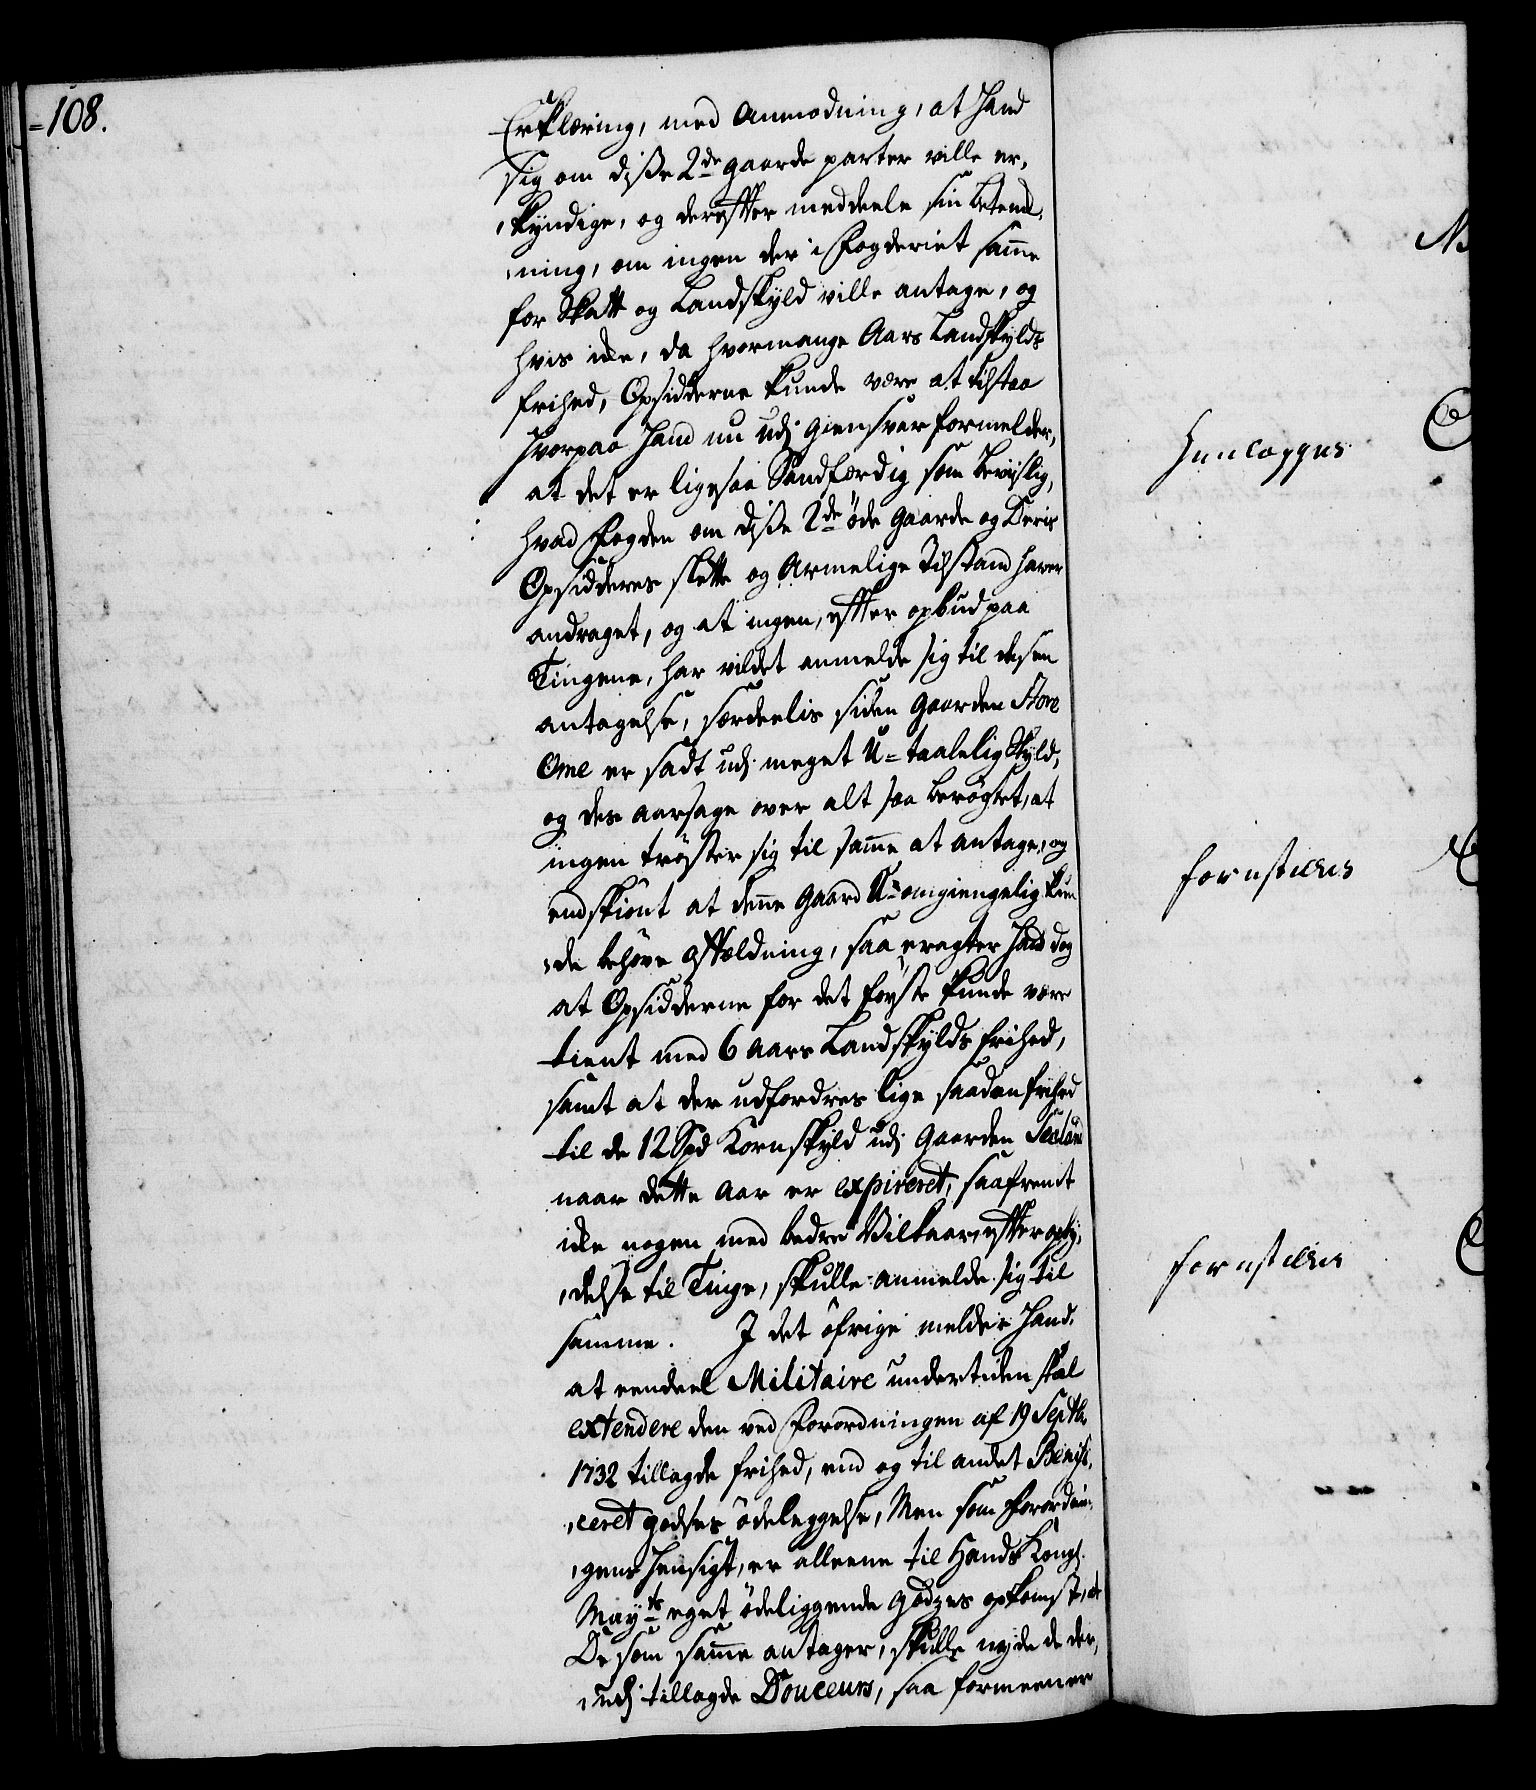 =108.
Erklæring, med Anmodning, at Hand
sig om disse 2de gaarde parter ville er,
,kyndige, og derefter meddeele sin betenk,
,ning, om ingen der i Fogderiet samme
for Skatt og Landskyld ville antage, og
hvis ikke, da hvormange Aars Landskylds
frihed, Opsidderne kunde være at tilstaa
Hvorpaa Hand nu udj giensvar formelder,
at det er ligesaa Sandfærdig som beviislig,
hvad Fogden om disse 2de öde gaarde og Deris
Opsidderes slette og Armelige Tilstand haver
andraget, og at ingen, efter opbud paa
Tingene, har vildet anmelde sig til desen
antagelse, særdeelis siden gaarden Store
Ome er sadt udj meget U=taalelig Skyld,
og des aarsage over alt saa berögtet, at
ingen tröster sig til samme at antage, og
endskiönt at denne gaard U=omgiengelig kun
,de behöve affældning, saa eragter Hand dog
at Opsidderne for det förste kunde være
tient med 6 Aars Landskylds frihed,
samt at der udfordres lige saadan frihed
til de 12 Spd Kornskyld udj Gaarden
naar dette Aar er expireret, saafremt
ikke nogen med bedre Vilkaar, efter opby,
,delse til Tinge, skulle anmelde sig til
samme. I det öfrige melder Hand,
at eendeel Militaire undertiden skal
extendere den ved Forordningen af 19 Septb.
1732 tillagde frihed, end og til andet Benifi,
,ceret godses ödeleggelse, Men som Forordnin,
,gens Hensigt, er alleene til Hands Kongl.
Mayts eget ödeliggende godzes opkomst, at
De som samme antager, skulle nyde de der,
,udj tillagde Douceurs, saa formeener